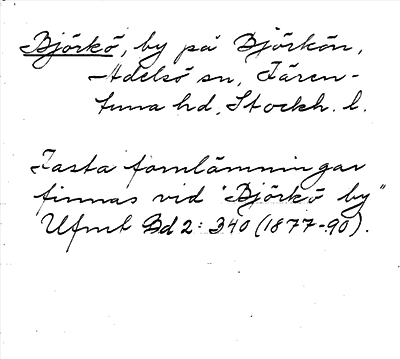 Björkö, by på Björkön,
Adelsö sn, Fären-
tuna hd, Stockh. l.
Fasta fornlämningar
finnas vid "Björkö by"
Ufmt Bd 2: 340 (1877-90).